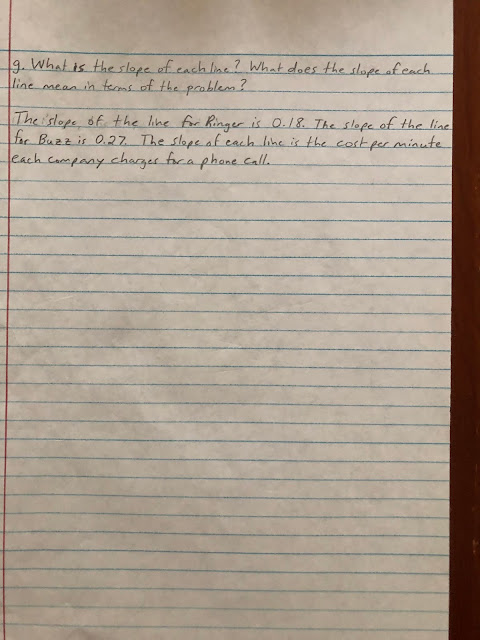 g. What is the slope of each line? What does the slope of each
line mean in terms of the problem?
The slope of the line for Ringer is 0.18. The slope of the line
for Buzz is 0.27. The slope of each line is the cost per minute
each company charges for a phone call.